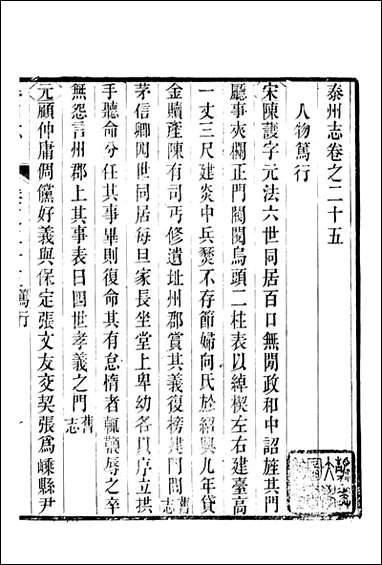 泰州志卷之二十五
人物篤行
宋陳護字元法六世同居百口無閒政和中詔旌其門
廳事夾欄正門閥閱烏頭二柱表以綽楔左右建臺高
一丈三尺建炎中兵燹不存節婦向氏於紹興九年貸
金贖產陳有司丐修遺址州郡賞其義復榜建門閭舊志
茅信卿四世同居每旦家長坐堂上卑幼各以序立拱
手聽命分任其事畢則復命其有怠惰者輒顰辱之卒
無怨言州郡上其事表曰四世孝義之門舊志
元顧仲庸倜儻好義與保定張文友交契張為嵊縣尹
篤行